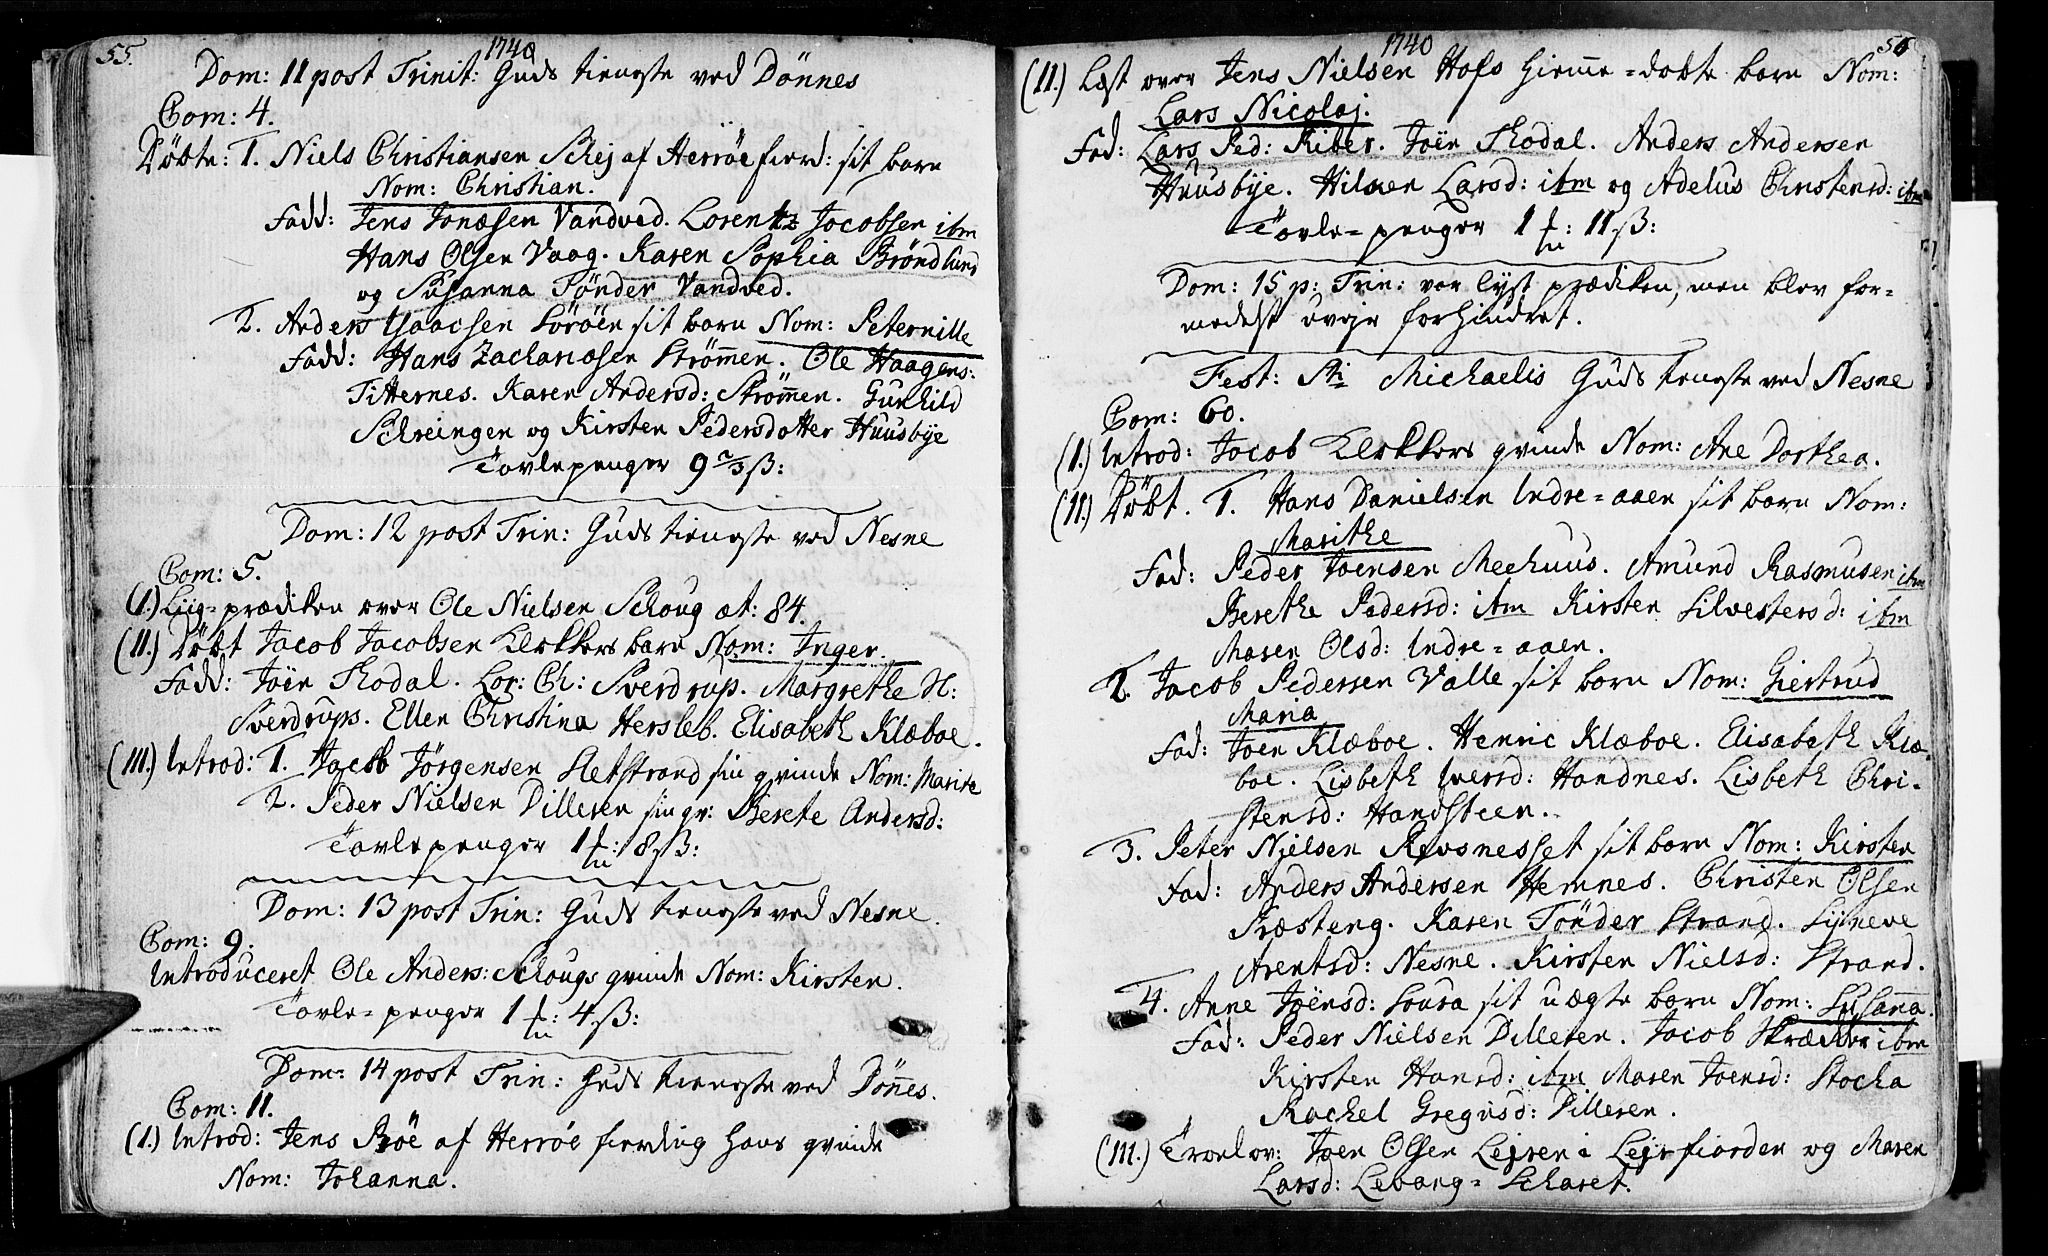 55.
1740
Dom: 11 post Trinit: Guds tieneste ved Dönnes
Com: 4.
Döbte: 1. Niels Christiansen Schej af Herröe fierd: sit barn
Nom: Christian.
Fadd: Jens Jonæsen Vandved. Lorentz Jacobsen ibm
Hans Olsen Vaag. Karen Sophia Bröndlund
og Susanna Tönder Vandved.
2. Anders Isaacsen Söröen sit barn Nom: Peternille
Fadd: Hans Zachariæsen Strömen. Ole Haagens:
Titternes. Karen Andersd: Strömen. Gunhild
Schreingen og Kirsten Pedersdotter Huusbye
Tavlepenger 9 2/3 ß:
Dom: 12 post Trin: Guds tieneste ved Nesne
Com: 5.
(I.) Liig-prædiken over Ole Nielsen Schoug æt: 84.
(II.) Döbt Jacob Jacobsen Klokkers barn Nom: Inger.
Fadd: Joen Thodal. Lor: Ch: Sverdrup. Margrethe H:
Sverdrups. Ellen Christina Hersleb. Elisabeth Klæboe.
(III.) Introd: 1. Jacob Jörgensen Sletstrand sin qvinde Nom: Marite
2. Peder Nielsen Dilleren sin qv: Berete Andersd:
Tavlepenger 1 : 8 ß:
Dom: 13 post Trin: Guds tieneste ved Nesne.
Com: 9.
Introduceret Ole Anders: Schougs qvinde Nom: Kirsten.
Tavle-penger 1 : 4 ß:
Dom: 14 post Trin: Guds tieneste ved Dönes.
Com: 11.
(I.) Introd: Jens Röe af Herröe fierding hans qvinde
Nom: Johanna.
1740
56
(II.) Læst over Jens Nielsen Hofs hieme-döbte barn Nom:
Lars Nicolaj.
Fad: Lars Ped: Riber. Joen Thodal. Anders Andersen
Huusbye. Hilken Larsd: ibm og Adelus Christensd: ibm
Tavle-penger 1 : 11 ß:
Dom: 15 p: Trin: var lyst prædiken, men blev for-
medelst uvejr forhindret.
Fest: Sti Michaelis Guds tieneste ved Nesne
Com: 60.
(I.) Introd: Jacob Klokkers qvinde Nom: Ane Dorthea.
(II.) Döbt. 1. Hans Danielsen Indre-aaen sit barn Nom:
Marithe
Fad: Peder Joensen Meehuus. Amund Rasmusen ibm
Berethe Pedersd: ibm Kirsten Silvestersd: ibm
Maren Olsd: Indre-aaen.
2. Jacob Pedersen Valle sit barn Nom: Giertrud
Maria
Fad: Joen Klæboe. Henric Klæboe. Elisabeth Klæ-
boe. Lisbeth Iversd: Handnes. Lisbeth Chri-
stensd: Handsteen.
3. Peter Nielsen Revsnesset sit barn Nom: Kirsten
Fad: Anders Andersen Hemnes. Christen Olsen
Præsteng. Karen Tönder Strand. Synneve
Arentsd: Nesne. Kirsten Nielsd: Strand.
4. Anne Joensd: Soura sit uægte barn Nom: Susanna.
Fad: Peder Nielsen Dilleren. Jacob Skrædder ibm
Kirsten Hansd: ibm Maren Joensd: Stocka
Rachel Gregusd: Dilleren.
(III.) Trolov: Joen Olsen Lejren i Lejrfiorden og Maren
Larsd: Levang-Scharet.